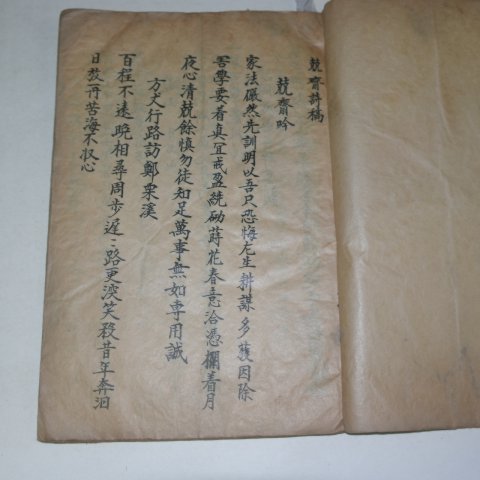 兢齋詩稿
兢齋吟
家法儼然先訓明以吾只恐悔尤生耕謀多穫因除
害學要着真宜戒盈繞砌蒔花春意洽憑欄看月
夜心清兢餘慎勿徒知足萬事無如專用誠
方丈行路訪鄭栗溪
百程不遠晩相尋周步遲〻路更深笑殺昔年奔汨
日教一再苦海不收心